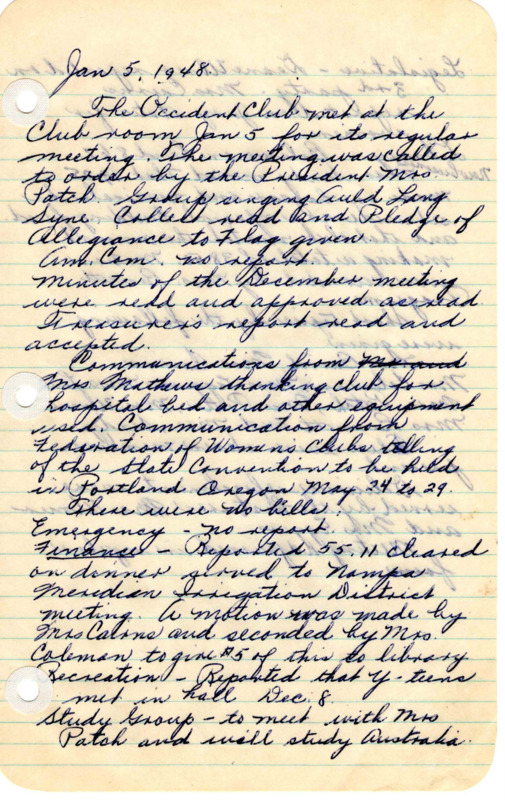 Jan 5, 1948.
The Occident Club met at the
Club room Jan 5 for its regular
meeting. The meeting was called
to order by the President Mrs
Patch Group singing Auld Lang
Syne Collect read and Pledge of
Allegiance to Flag given
Am. Com. no report.
Minutes of the December meeting
were read and approved as read.
Treasurer's report read and
accepted.
Communications from Mr and
Mrs Mathews thanking club for
hospital bed and other equipment
used. Communication from
Federation of Women's Clubs telling
of the State Convention to be held
in Portland Oregon May 24 to 29.
There were no bills.
Emergency - no report
Finance - Reported 55.11 cleared
on dinner served to Nampa
Meridian Irrigation District
meeting. A motion was made by
Mrs Cairns and seconded by Mrs.
Coleman to give $5 of this to library
Recreation - Reported that Y-teens
met in hall Dec. 8.
Study Group - to meet with Mrs
Patch and will study Australia.